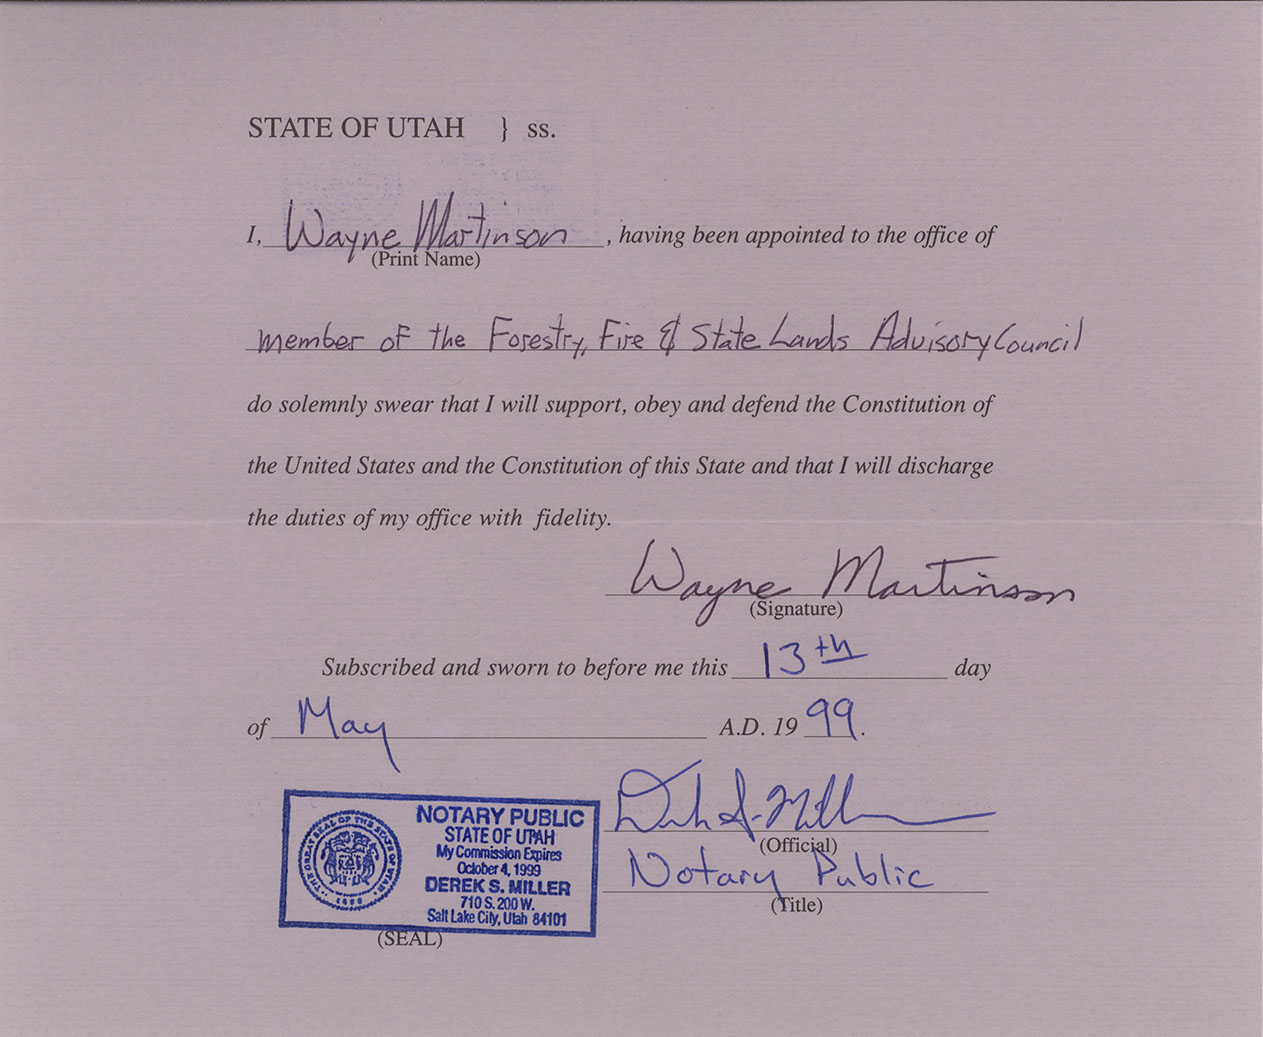 STATE OF UTAH } ss.
I, Wayne Martinson, having been appointed to the office of
(Print Name)
member of the Forestry, Fire & State Lands Advisory Council
do solemnly swear that I will support, obey and defend the Constitution of
the United States and the Constitution of this State and that I will discharge
the duties of my office with fidelity.
Wayne Martinson
(Signature)
Subscribed and sworn to before me this 13th day
of May A.D. 19 99.
NOTARY PUBLIC
STATE OF UTAH
My Commission Expires
October 4, 1999
DEREK S. MILLER
710 S. 200 W.
Salt Lake City, Utah 84101
THE GREAT SEAL OF THE STATE OF UTAH
1896
(SEAL)
(Official)
Notary Public
(Title)